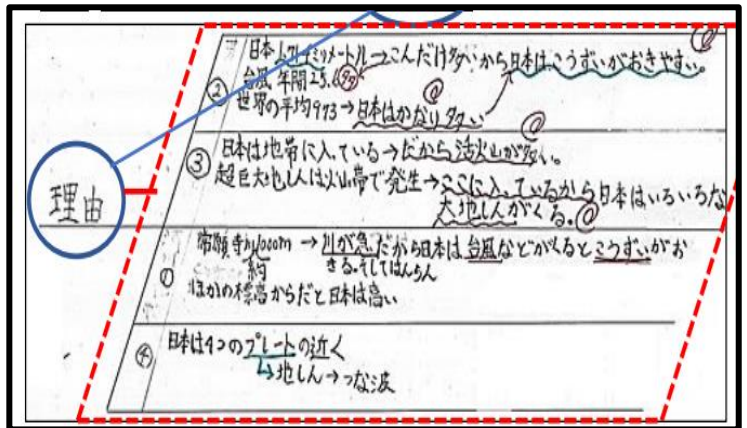 理由
②
日本1,718ミリメートル→こんだけ多いから日本はこうずいがおきやすい。
台風 年間25.6
世界の平均973→日本はかなり多い
③
日本は地帯に入っている→だから活火山が多い。
超巨大地しんは火山帯で発生→ここに入っているから日本はいろいろな
大地しんがくる。
①
常願寺川 →川が急だから日本は台風などがくるとこうずいがお
約 きる。そしてはんらん
ほかの標高からだと日本は高い
④
日本は4つのプレートの近く
↳地しん→つな波